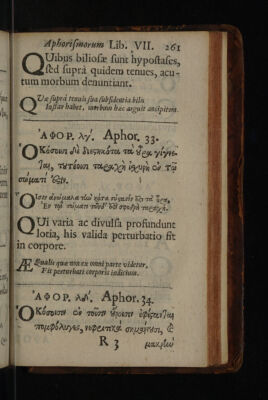 Aphorismorum Lib. VII. 261
QUibus biliosæ sunt hypostases,
sed suprà quidem tenues, acu-
tum morbum denuntiant.
Quæ suprà tenuis sua subsidentia bilu
losior habet, morbum hæc arguit ancipitem.
ἈΦΟΡ. λγ'. Aphor. 33.
Ὁκόσοισι δὲ διεστηκότα τὰ οὖρα γίγνε-
ται, τυτέοισι ταραχὴ ἰσχυρὴ ἐν τῷ
σώματί ἐστιν.
QUi varia ac divulsa profundunt
lotia, his valida perturbatio fit
in corpore.
Æqualis quæ non ex omni parte videtur,
Fit perturbati corporis indicium.
ἈΦΟΡ. λδ'. Aphor. 34.
Ὁκόσοισιν ἐν τοῖσιν οὔροισιν ὑφίστανται
πομφόλυγες, νεφριτικὰ σημαίνει, καὶ
R 3 μακρὴν